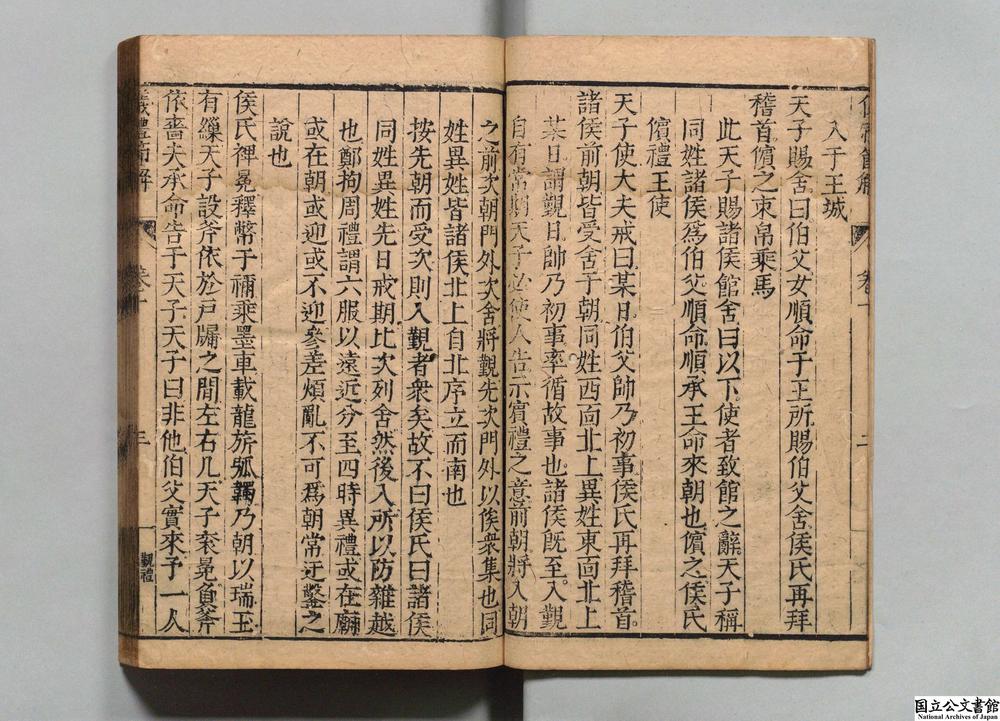 入于王城
天子賜舍曰伯父女順命于王所賜伯父舍侯氏再拜
稽首儐之束帛乘馬
此天子賜諸侯館舍曰以下使者致館之辭天子稱
同姓諸侯爲伯父順命順承王命來朝也儐之侯氏
儐禮王使
天子使大夫戒曰某日伯父帥乃初事侯氏再拜稽首
諸侯前朝皆受舍于朝同姓西面北上異姓東面北上
某日謂覲日帥乃初事率循故事也諸侯旣至入覲
自有常期天子必使人告示賓禮之意前朝將入朝
之前次朝門外次舍將覲先次門外以俟衆集也同
姓異姓皆諸侯北上自北序立而南也
按先朝而受次則入覲者衆矣故不曰侯氏曰諸侯
同姓異姓先日戒期比次列舍然後入所以防雜越
也鄭拘周禮謂六服以遠近分至四時異禮或在廟
或在朝或迎或不迎參差煩亂不可爲朝常迂鑿之
說也
侯氏裨冕釋幣于禰乘墨車載龍旂弧韣乃朝以瑞玉
有繅天子設斧依於戸牖之間左右几天子袞冕負斧
依嗇夫承命告于天子天子曰非他伯父實來予一人
儀禮節解
卷十
二
儀禮節解
卷十
三
覲禮
国立公文書館
National Archives of Japan